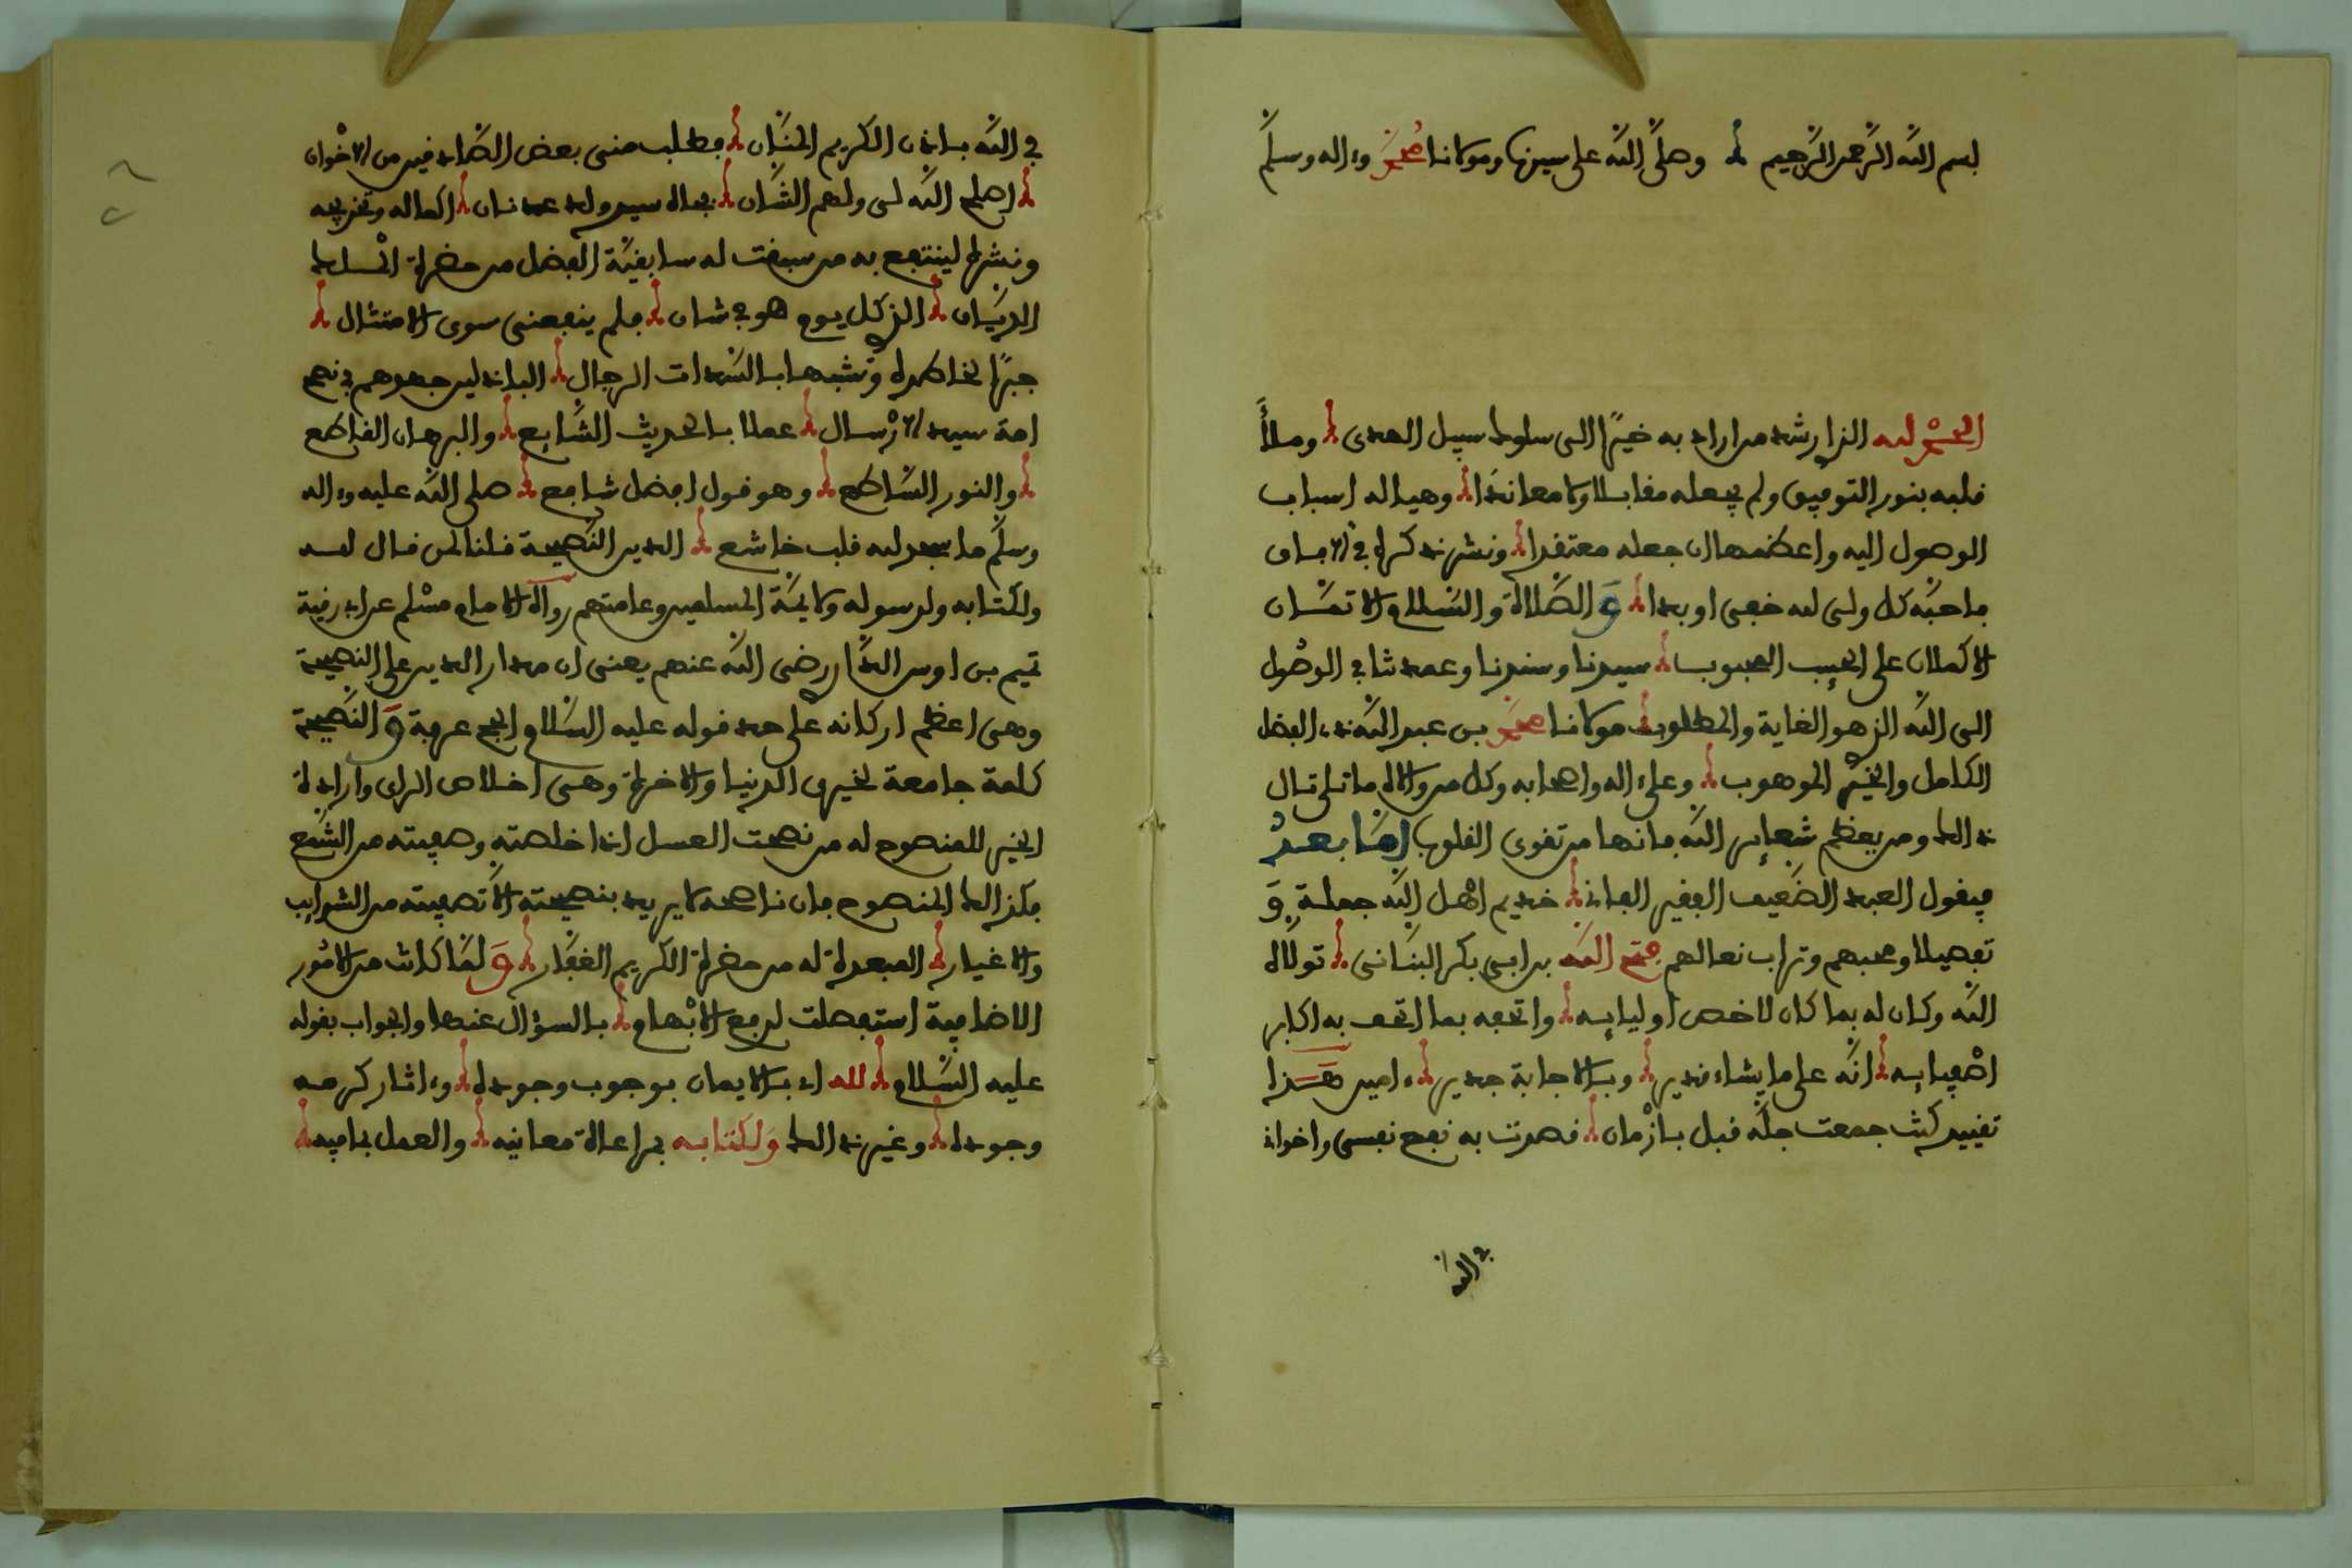 بسم الله الرحمن الرحيم وصلى الله على سيدنا ومولانا محمد وءاله وسلم
الحمد لله الذي ارشد من اراد به خيرا الى سلوك سبيل الهدى وملأ
قلبه بنور التوفيق ولم يجعله مقابلا ولا معاندا وهيا له اسباب
الوصول اليه واعظمها ان جعله معتقدا ونشر ذكره في الافاق
فاحبه كل ولى لله خفى او بدا و الصلاة والسلام الاتمان
الاكملان على الحبيب المحبوب سيدنا وسندنا وعمدتنا في الوصول
الى الله الذي هو الغاية والمطلوب مولانا محمد بن عبد الله ذي الفضل
الكامل والخير الموهوب وعلى ءاله واصحابه وكل من والاه ما تلى تال
ذالك ومن يعظم شعاير الله فانها من تقوى القلوب اما بعد
فيقول العبد الضعيف الفقير الفاني خديم اهل الله جملة و
تفصيلا ومحبهم وتراب نعالهم فتح الله بن ابى بكر البنانى تولاه
الله وكان له بما كان لاخص اوليايه واتحفه بما اتحف به اكابر
اصفيايه انه على ما يشاء قدير وبالاجابة جدير ءامين هذا
تقييد كنت جمعت جله قبل بازمان قصدت به نفع نفسى واخواني
في الله
في الله باذن الكريم المنان فطلب منى بعض الصادقين من الاخوان
اصلح الله لى ولهم الشان بجاه سيد ولد عدنان اكماله وتخريجه
ونشره لينتفع به من سبقت له سابقية الفضل من حضرة الملك
الديان الذي كل يوم هو في شان فلم ينفعنى سوى الامتثال
جبرا لخاطره وتشبها بالسادات الرجال الباذلين جهدهم في نصح
امة سيد الارسال عملا بالحديث الشايع والبرهان القاطع
والنور الساطع وهو قول افضل شافع صلى الله عليه وءاله
وسلم ما سجد لله قلب خاشع الدين النصيحة قلنا لمن قال لله
ولكتابه ولرسوله ولايمة المسلمين وعامتهم رواه الامام مسلم عن ابي رقية
تميم بن اوس الداري رضى الله عنهم يعنى ان مدار الدين على النصيحة
وهى اعظم اركانه على حد قوله عليه السلام الحج عرفة و النصيحة
كلمة جامعة لخيري الدنيا والاخرة وهى اخلاص الراي وارادة
الخير للمنصوح له من نصحت العسل اذا خلصته وصفيته من الشمع
فكذالك المنصوح فان ناصحه لا يريد بنصيحته الا تصفيته من الشوايب
والاغيار المبعدة له من حضرة الكريم الغفار و لما كانت من الامور
الاضافية استفصلت لرفع الابهام بالسؤال عنها والجواب بقوله
عليه السلام لله اي بالايمان بوجوب وجوده وءاثار كرمه
وجوده وغير ذالك ولكتابه بمراعاة معانيه والعمل بما فيه